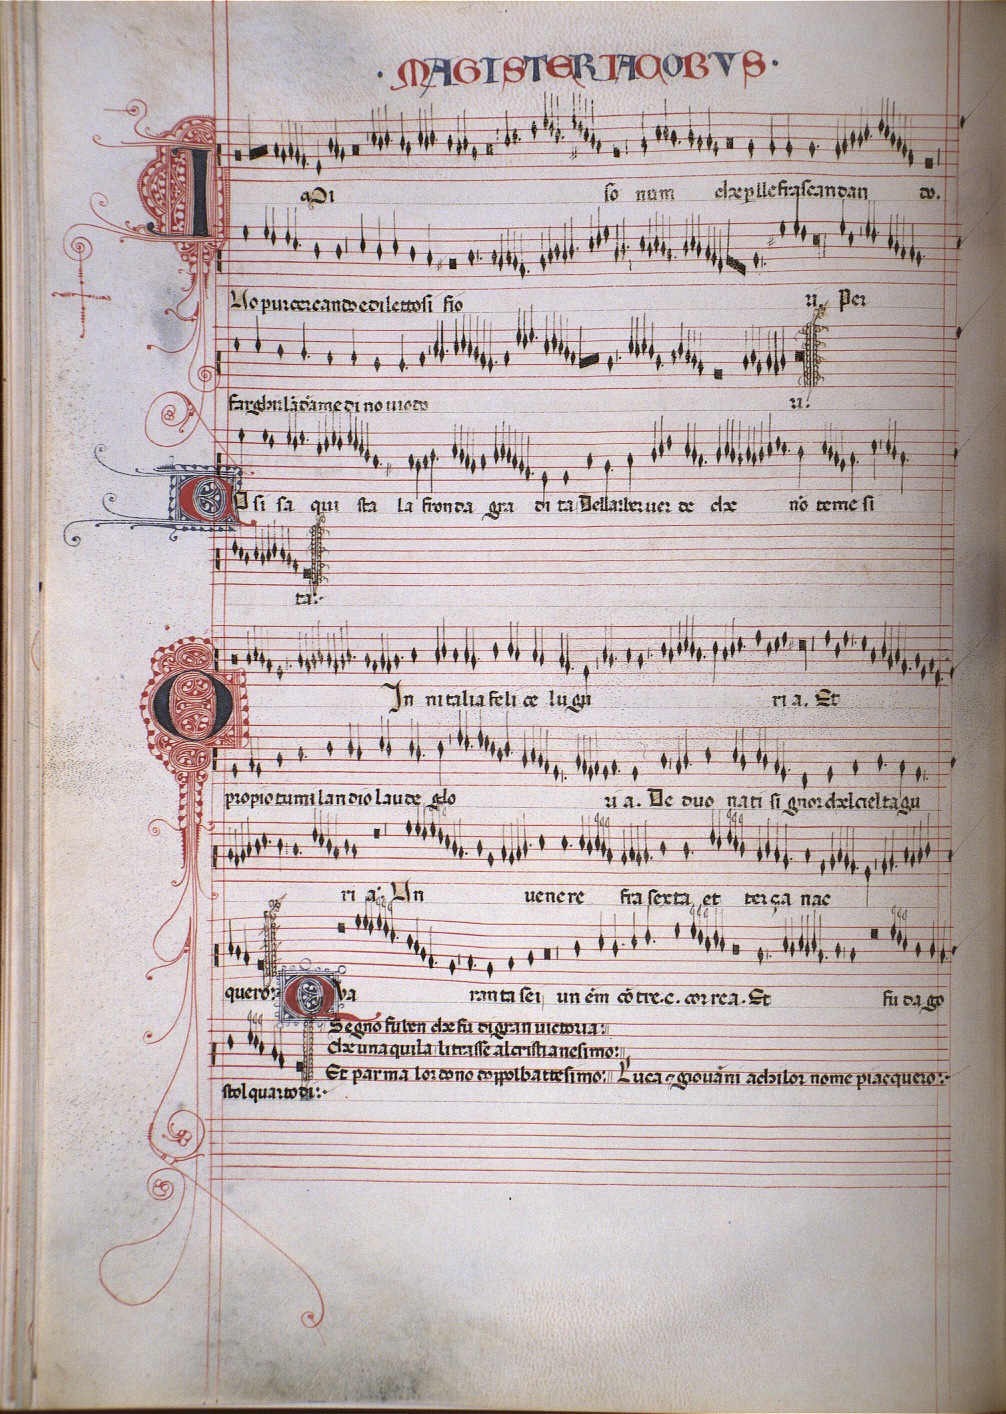 · MAGISTER IACOBVS ·
I oDi so num che plle frascandan do.
Vo pur cercando e dilettosi fio ri. Per
far ghirlãda me di no uiodo ri:
C O si fa qui sta la fronda gra di ta Dellarber uer de che nõ teme si
ta:
O In ni talia feli ce lu gu ri a. Et
propio tu mi lan dio lau de glo ri a. De duo nati si gnor chelciel ta gu
ri a: Un uenere fra sexta et terça nac
quero: Q Va ran ta sei un ẽm cõ tre.c. cor re a. Et fu da go
Segno fu ben che fu di gran uictoria:
Che unaquila li trasse al cristianesimo:
Et parma lor dono doppol battesimo: Luca giouãni achi lor nome piacquero:
stol quarto di: